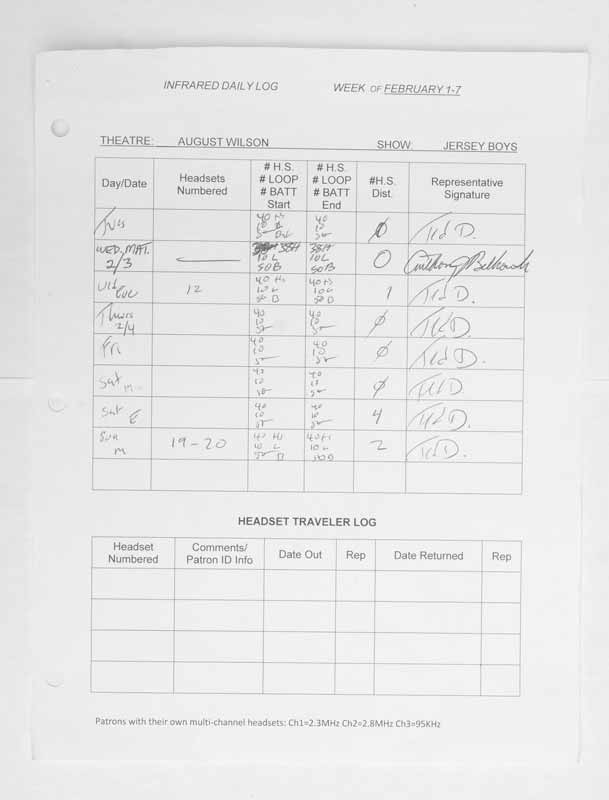 INFRARED DAILY LOG WEEK OF FEBRUARY 1-7
THEATRE: AUGUST WILSON SHOW: JERSEY BOYS
Day/Date Headsets Numbered # H.S. # LOOP # BATT Start # H.S. # LOOP # BATT End #H.S. Dist. Representative Signature
Tues 40 HS 10 50 40 10 50 Ø Ted D.
WED. MAT. 2/3 — 38H 10L 50B 38H 10L 50B 0 Anthony
Wed Eve 12 40 HS 10 L 50 B 40 HS 10 L 50 B 1 Ted D.
Thurs 2/4 40 10 50 40 10 50 Ø Ted D.
Fri 40 10 50 40 10 50 Ø Ted D.
Sat M 40 10 50 40 10 50 Ø Ted D.
Sat E 40 10 50 40 10 50 4 Ted D.
Sun M 19-20 40 HS 10 L 50 B 40 HS 10 L 2 Ted D.
HEADSET TRAVELER LOG
Headset Numbered Comments/ Patron ID Info Date Out Rep Date Returned Rep
Patrons with their own multi-channel headsets: Ch1=2.3MHz Ch2=2.8MHz Ch3=95KHz